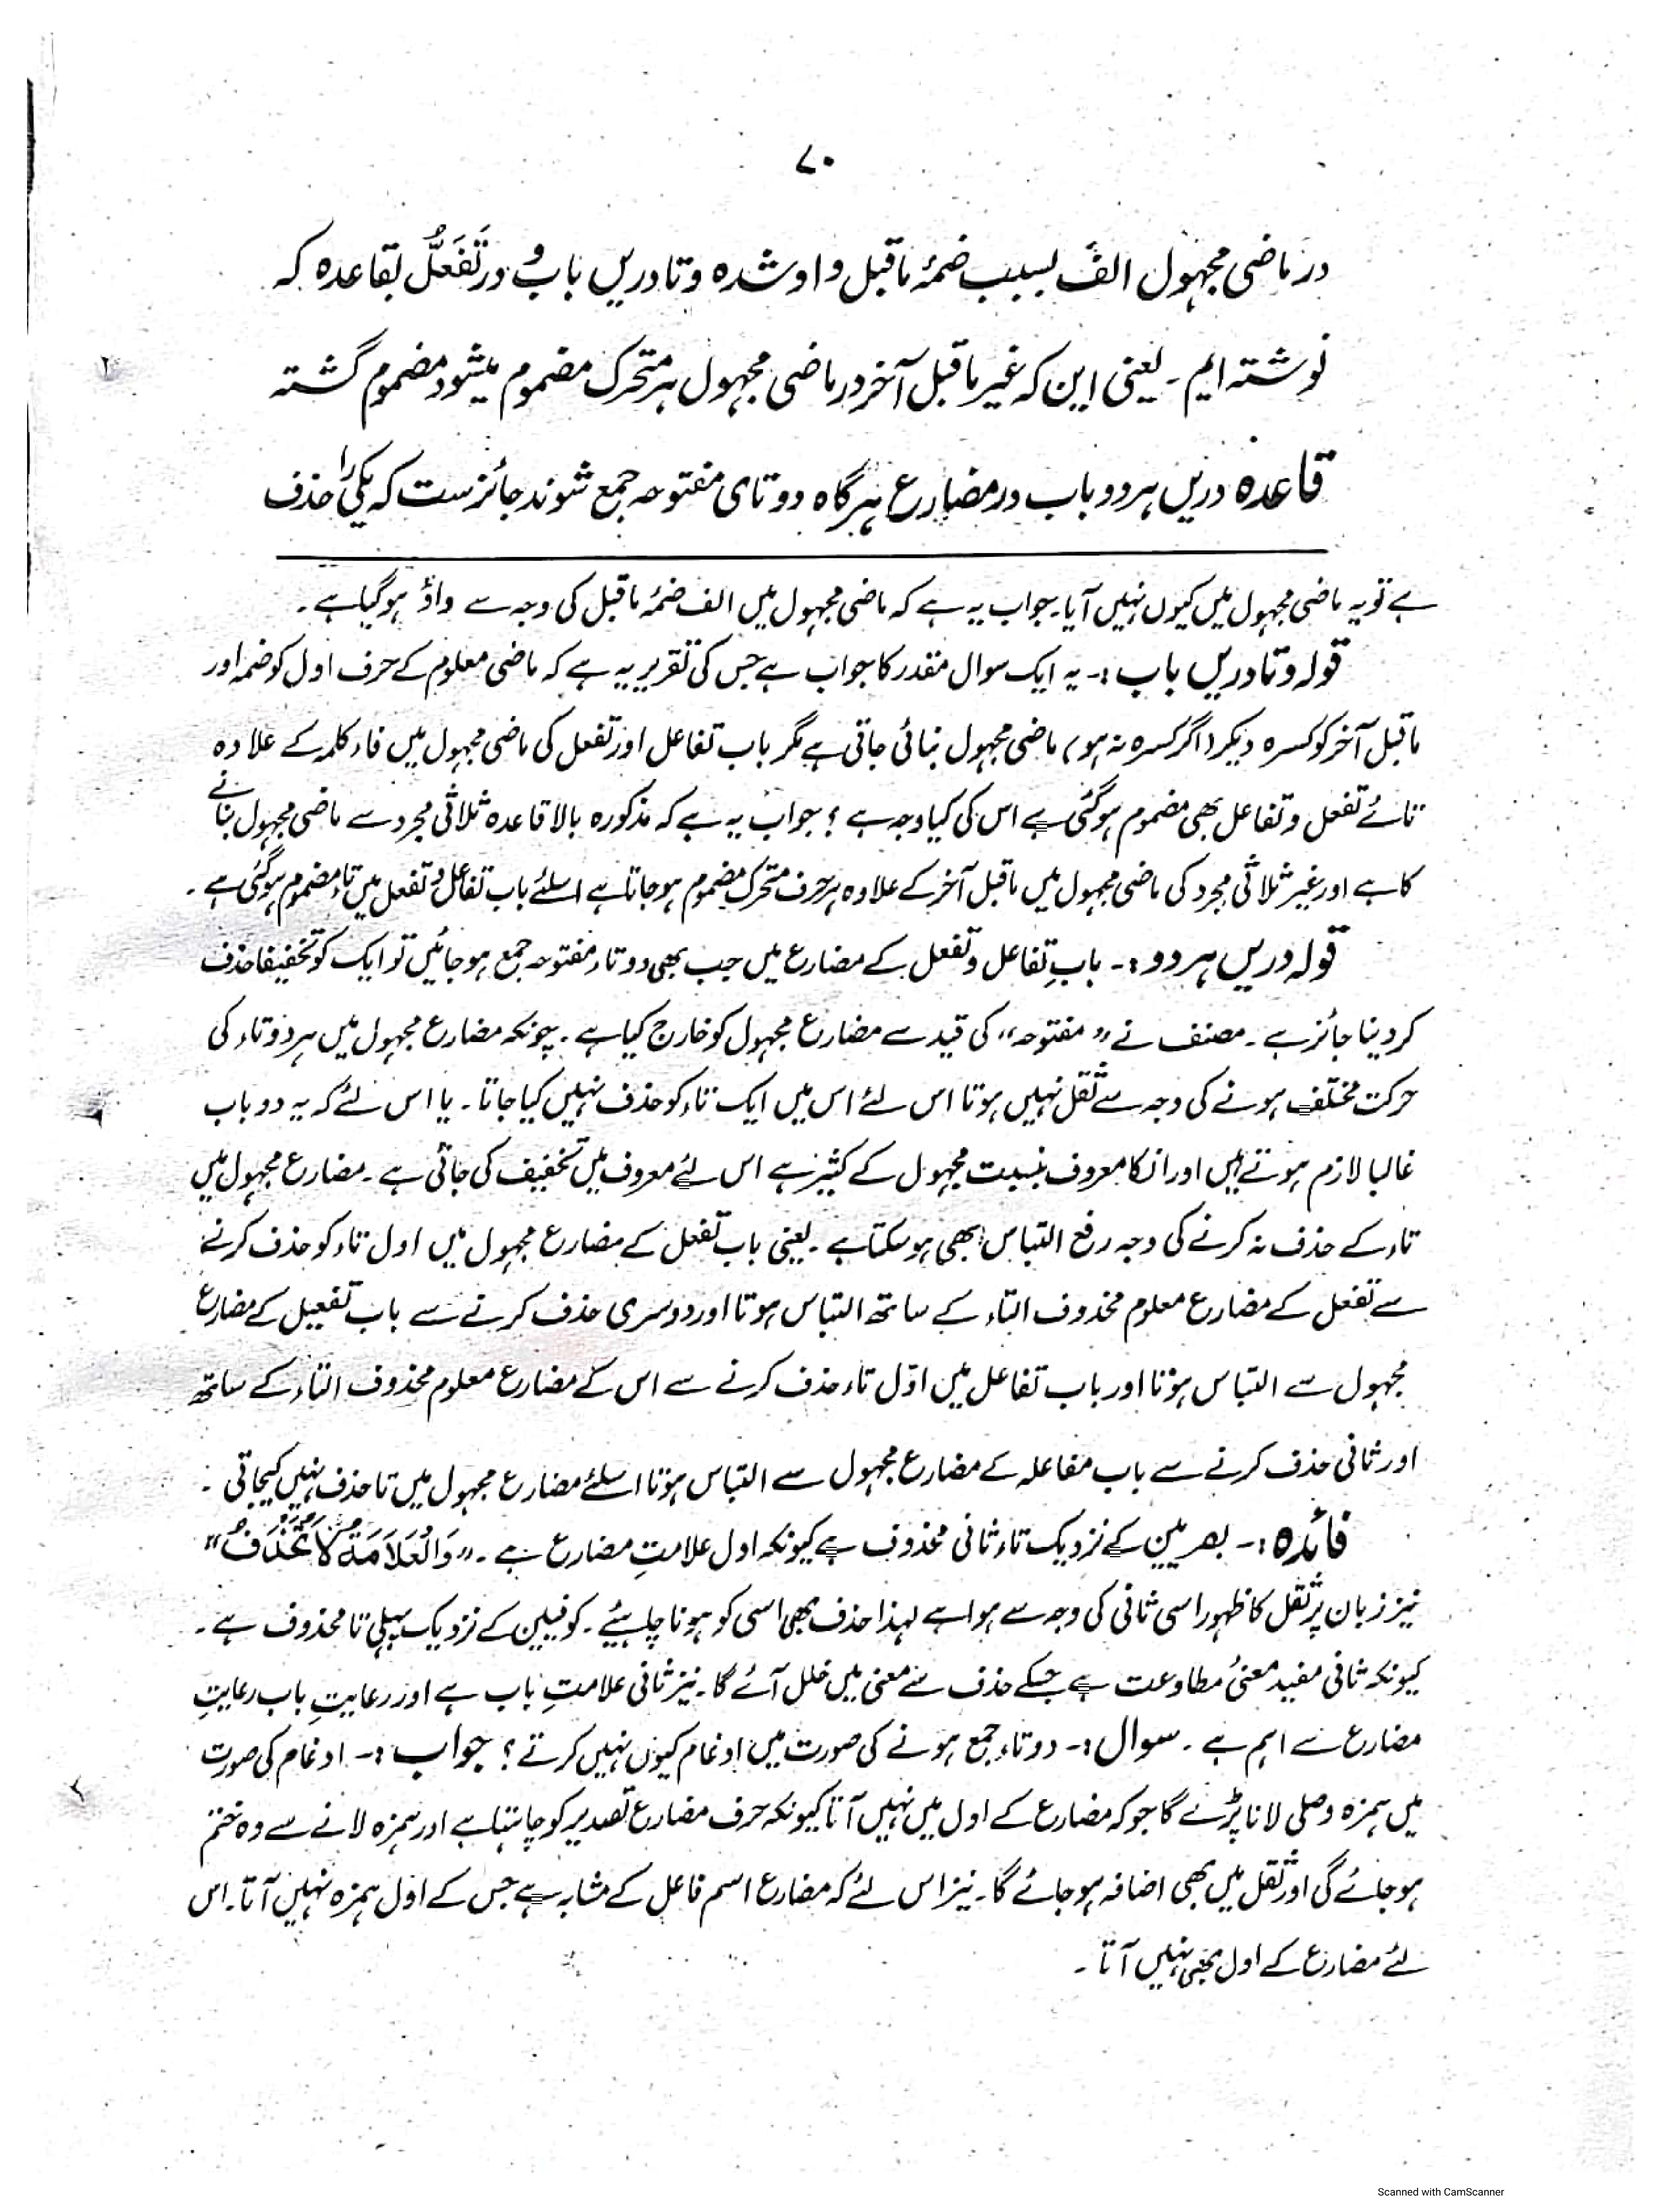 ۷۰
در ماضی مجہول الف بسبب ضمۂ ماقبل واو شدہ و تا دریں باب و در تَفَعُّلُ بقاعدہ کہ
نوشتہ ایم۔ یعنی این کہ غیر ماقبل آخر در ماضی مجہول ہر متحرک مضموم میشود مضموم گشتہ
قاعدہ دریں ہر دو باب در مضارع ہرگاہ دو تای مفتوحہ جمع شوند جائزست کہ یکی را حذف
ہے تو یہ ماضی مجہول میں کیوں نہیں آیا۔ جواب یہ ہے کہ ماضی مجہول میں الف ضمۂ ماقبل کی وجہ سے واؤ ہوگیا ہے۔
قولہ و تا دریں باب :۔ یہ ایک سوال مقدر کا جواب ہے جس کی تقریر یہ ہے کہ ماضی معلوم کے حرف اول کو ضمہ اور
ماقبل آخر کو کسرہ دیکر (اگر کسرہ نہ ہو) ماضی مجہول بنائی جاتی ہے مگر باب تفاعل اور تفعل کی ماضی مجہول میں فاء کلمہ کے علاوہ
تائے تفعل و تفاعل بھی مضموم ہوگئی ہے اس کی کیا وجہ ہے ؟ جواب یہ ہے کہ مذکورہ بالا قاعدہ ثلاثی مجرد سے ماضی مجہول بنانے
کا ہے اور غیر ثلاثی مجرد کی ماضی مجہول میں ماقبل آخر کے علاوہ ہر حرف متحرک مضموم ہوجاتا ہے اسلئے باب تفاعل و تفعل میں تاء مضموم ہوگئی ہے۔
قولہ دریں ہر دو :۔ بابِ تفاعل و تفعل کے مضارع میں جب بھی دو تاء مفتوحہ جمع ہوجائیں تو ایک کو تخفیفا حذف
کر دینا جائز ہے۔ مصنف نے ”مفتوحہ“ کی قید سے مضارع مجہول کو خارج کیا ہے۔ چونکہ مضارع مجہول میں ہر دو تاء کی
حرکت مختلف ہونے کی وجہ سے ثقل نہیں ہوتا اس لئے اس میں ایک تاء کو حذف نہیں کیا جاتا۔ یا اس لئے کہ یہ دو باب
غالبا لازم ہوتے ہیں اور انکا معروف بنسبت مجہول کے کثیر ہے اس لئے معروف میں تخفیف کی جاتی ہے۔ مضارع مجہول میں
تاء کے حذف نہ کرنے کی وجہ رفع التباس بھی ہوسکتا ہے۔ یعنی باب تفعل کے مضارع مجہول میں اول تاء کو حذف کرنے
سے تفعل کے مضارع معلوم محذوف التاء کے ساتھ التباس ہوتا اور دوسری حذف کرنے سے باب تفعیل کے مضارع
مجہول سے التباس ہوتا اور باب تفاعل میں اوّل تاء حذف کرنے سے اس کے مضارع معلوم محذوف التاء کے ساتھ
اور ثانی حذف کرنے سے باب مفاعلہ کے مضارع مجہول سے التباس ہوتا اسلئے مضارع مجہول میں تا حذف نہیں کیجاتی۔
فائدہ :۔ بصریین کے نزدیک تاء ثانی محذوف ہے کیونکہ اول علامتِ مضارع ہے۔ ”وَالْعَلَامَةُ لَا تُحْذَفُ“
نیز زبان پر ثقل کا ظہور اسی ثانی کی وجہ سے ہوا ہے لہذا حذف بھی اسی کو ہونا چاہیئے۔ کوفیین کے نزدیک پہلی تا محذوف ہے۔
کیونکہ ثانی مفید معنیٔ مطاوعت ہے جسکے حذف سے معنی میں خلل آئے گا۔ نیز ثانی علامتِ باب ہے اور رعایتِ باب رعایتِ
مضارع سے اہم ہے۔ سوال :۔ دو تاء جمع ہونے کی صورت میں ادغام کیوں نہیں کرتے ؟ جواب :۔ ادغام کی صورت
میں ہمزہ وصلی لانا پڑے گا جو کہ مضارع کے اول میں نہیں آتا کیونکہ حرف مضارع تصدیر کو چاہتا ہے اور ہمزہ لانے سے وہ ختم
ہوجائے گی اور ثقل میں بھی اضافہ ہوجائے گا۔ نیز اس لئے کہ مضارع اسم فاعل کے مشابہ ہے جس کے اول ہمزہ نہیں آتا۔ اس
لئے مضارع کے اول بھی نہیں آتا۔
Scanned with CamScanner